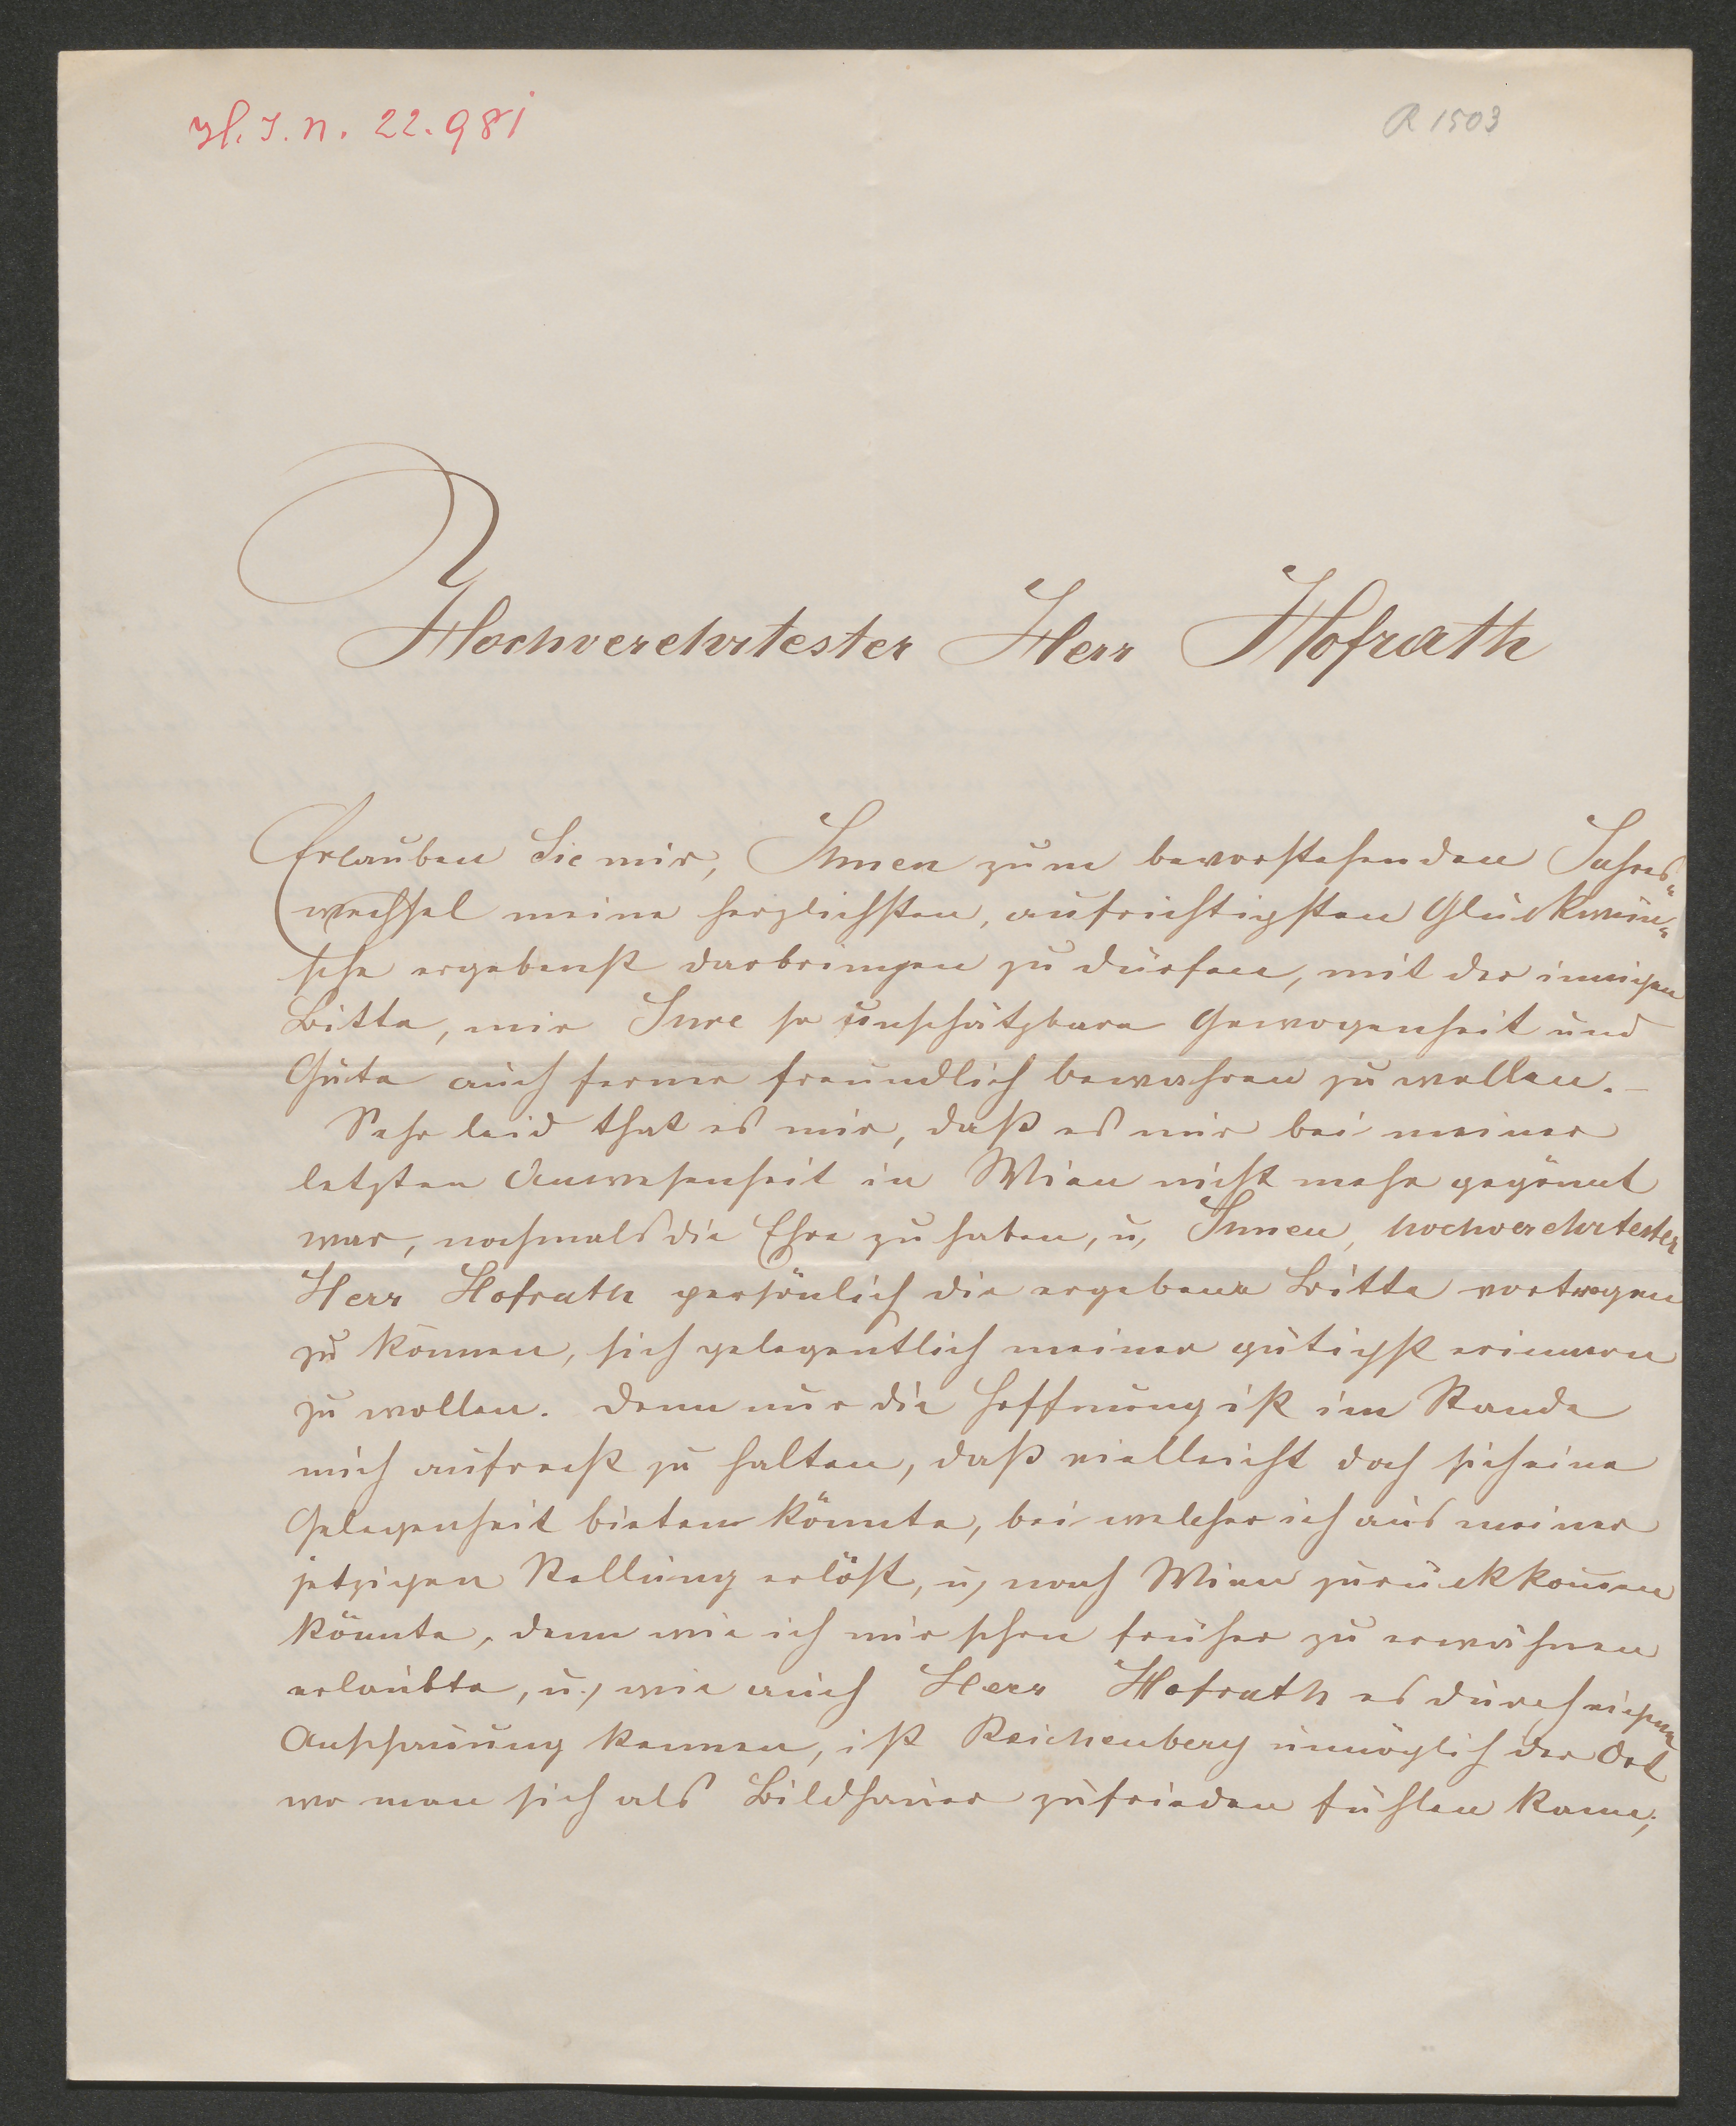 H. I. N. 22.981
R 1503
Hochverehrtester Herr Hofrath
Erlauben Sie mir, Ihnen zum bevorstehenden Jahres„
wechsel meine herzlichsten, aufrichtigsten Glückwün„
sche ergebenst darbringen zu dürfen, mit der innigen
Bitte, mir Ihre so unschätzbare Gewogenheit und
Güte auch ferner freundlich bewahren zu wollen. –
Sehr leid that es mir, daß es mir bei meiner
letzten Anwesenheit in Wien nicht mehr gegönnt
war, nochmals die Ehre zu haben, u, Ihnen, hochverehrtester
Herr Hofrath persönlich die ergebene Bitte vortragen
zu können, sich gelegentlich meiner gütigst erinnern
zu wollen. Denn nur die Hoffnung ist im Stande
mich aufrecht zu halten, daß vielleicht doch sich eine
Gelegenheit bieten könnte, bei welcher ich aus meiner
jetzigen Stellung erlöst, u, nach Wien zurückkommen
könnte, denn wie ich mir schon früher zu erwähnen
erlaubte, u., wie auch Herr Hofrath es durch eigene
Anschauung kennen, ist Reichenberg unmöglich der Ort
wo man sich als Bildhauer zufrieden fühlen kann;